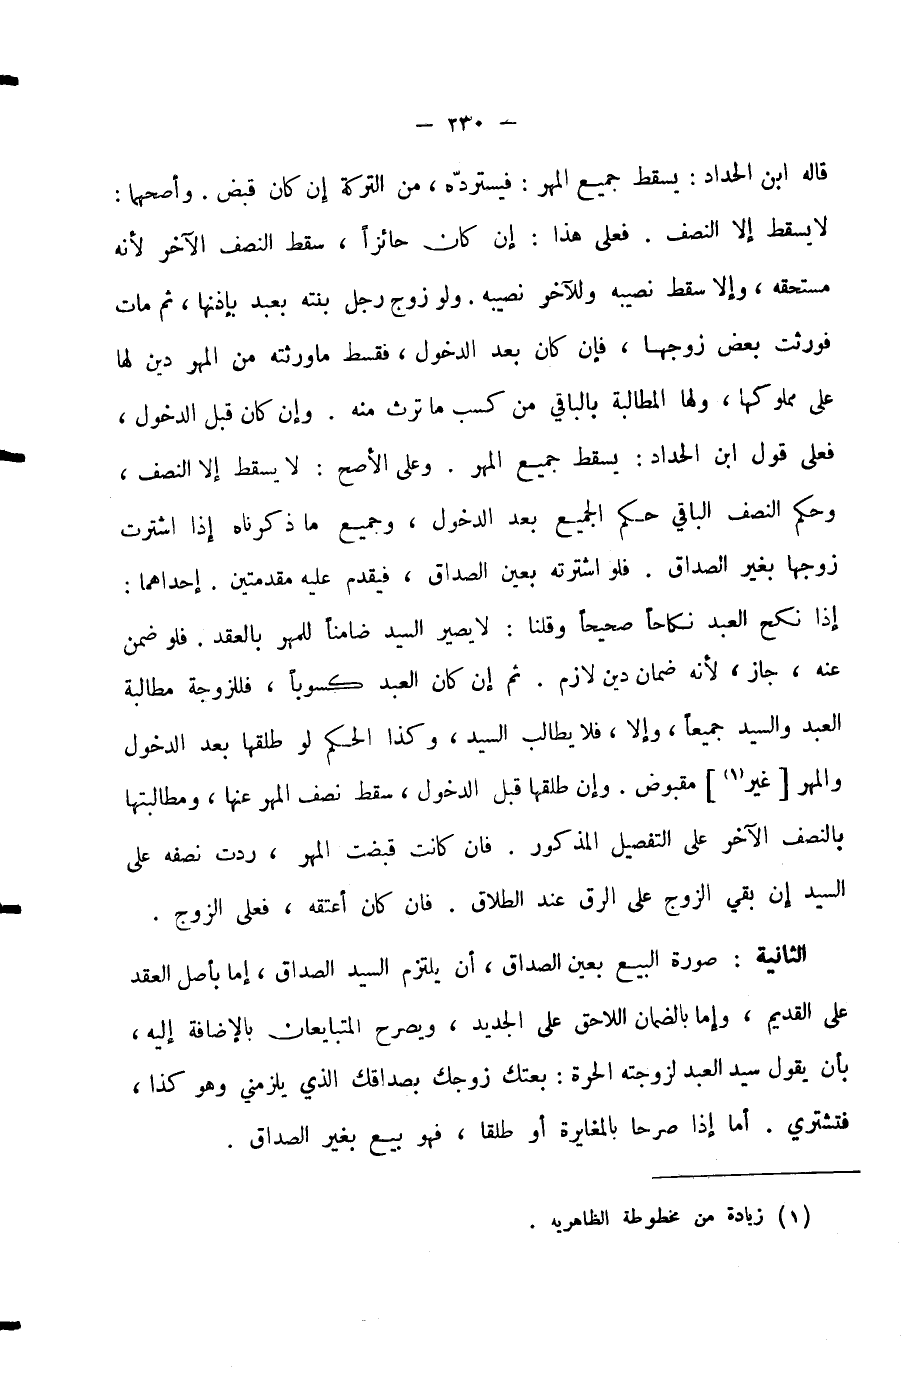 — ٢٣٠ —
قاله ابن الحداد : يسقط جميع المهر : فيستردّه ، من التركة إن كان قبض . وأصحها :
لايسقط إلا النصف . فعلى هذا : إن كان حائزاً ، سقط النصف الآخر لأنه
مستحقه ، وإلا سقط نصيبه وللآخر نصيبه . ولو زوج رجل بنته بعبد بإذنها ، ثم مات
فورثت بعض زوجها ، فإن كان بعد الدخول ، فقسط ماورثته من المهر دين لها
على مملوكها ، ولها المطالبة بالباقي من كسب ما ترث منه . وإن كان قبل الدخول ،
فعلى قول ابن الحداد : يسقط جميع المهر . وعلى الأصح : لا يسقط إلا النصف ،
وحكم النصف الباقي حكم الجميع بعد الدخول ، وجميع ما ذكرناه إذا اشترت
زوجها بغير الصداق . فلو اشترته بعين الصداق ، فيقدم عليه مقدمتين . إحداهما :
إذا نكح العبد نكاحاً صحيحاً وقلنا : لايصير السيد ضامناً للمهر بالعقد . فلو ضمن
عنه ، جاز ، لأنه ضمان دين لازم . ثم إن كان العبد كسوباً ، فللزوجة مطالبة
العبد والسيد جميعاً ، وإلا ، فلا يطالب السيد ، وكذا الحكم لو طلقها بعد الدخول
والمهر [ غير(١) ] مقبوض . وإن طلقها قبل الدخول ، سقط نصف المهر عنها ، ومطالبتها
بالنصف الآخر على التفصيل المذكور . فان كانت قبضت المهر ، ردت نصفه على
السيد إن بقي الزوج على الرق عند الطلاق . فان كان أعتقه ، فعلى الزوج .
الثانية : صورة البيع بعين الصداق ، أن يلتزم السيد الصداق ، إما بأصل العقد
على القديم ، وإما بالضمان اللاحق على الجديد ، ويصرح المتبايعان بالإضافة إليه ،
بأن يقول سيد العبد لزوجته الحرة : بعتك زوجك بصداقك الذي يلزمني وهو كذا ،
فتشتري . أما إذا صرحا بالمغايرة أو طلقا ، فهو بيع بغير الصداق .
(١) زيادة من مخطوطة الظاهريه .